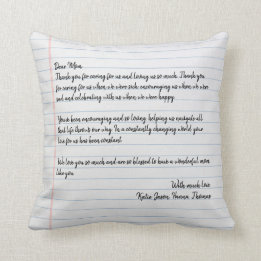 Dear Mom,
Thank you for caring for us and loving us so much. Thank you
for caring for us when we were sick, encouraging us when we were
sad and celebrating with us when we were happy.
You've been encouraging and so loving, helping us navigate all
that life threw our way. In a constantly changing world, your
love for us has been constant.
We love you so much and are so blessed to have a wonderful mom
like you.
With much love
Katie Jason Hanna Thomas